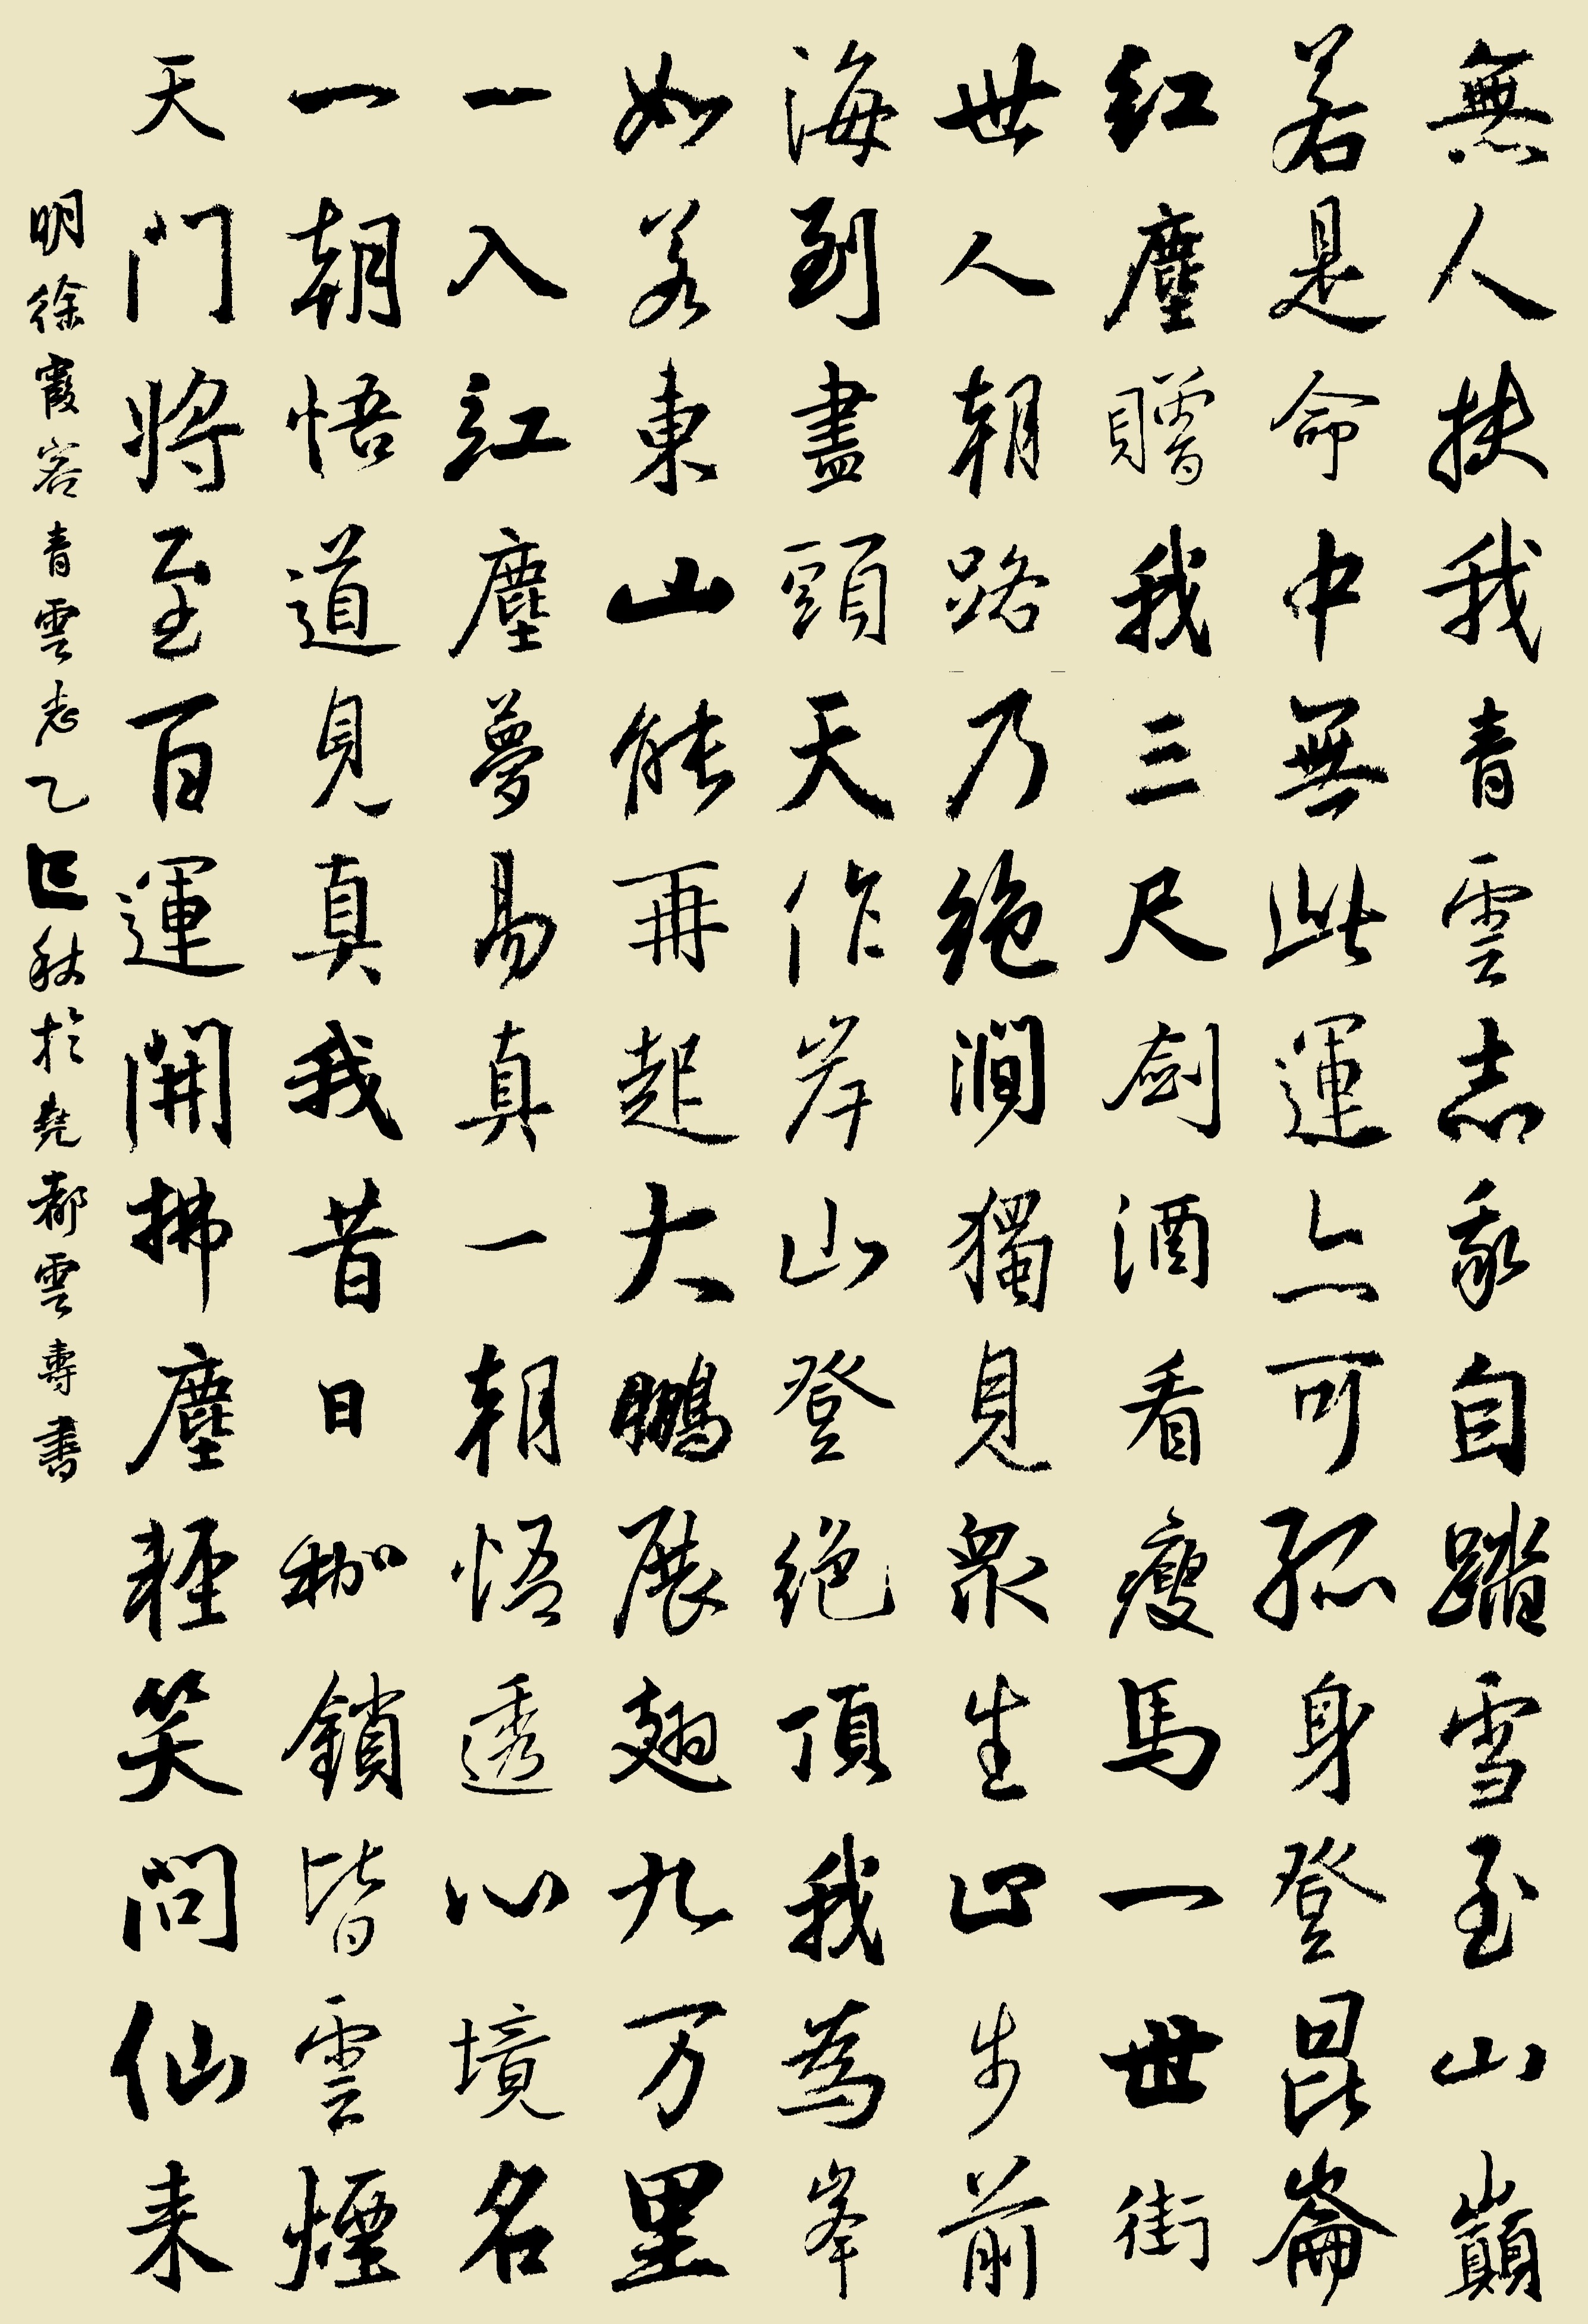 無人扶我青雲志我自踏雪至山巔
若是命中無此運亦可孤身登昆崙
紅塵贈我三尺劍酒看瘦馬一世街
世人朝路乃絕澗獨見眾生止步前
海到盡頭天作岸山登絕頂我為峯
如若東山能再起大鵬展翅九万里
一入紅塵夢易真一朝悟透心境名
一朝悟道見真我昔日枷鎖皆雲煙
天門將至百運開拂塵輕笑問仙来
明徐霞客青雲志乙巳秋於堯都雲壽書